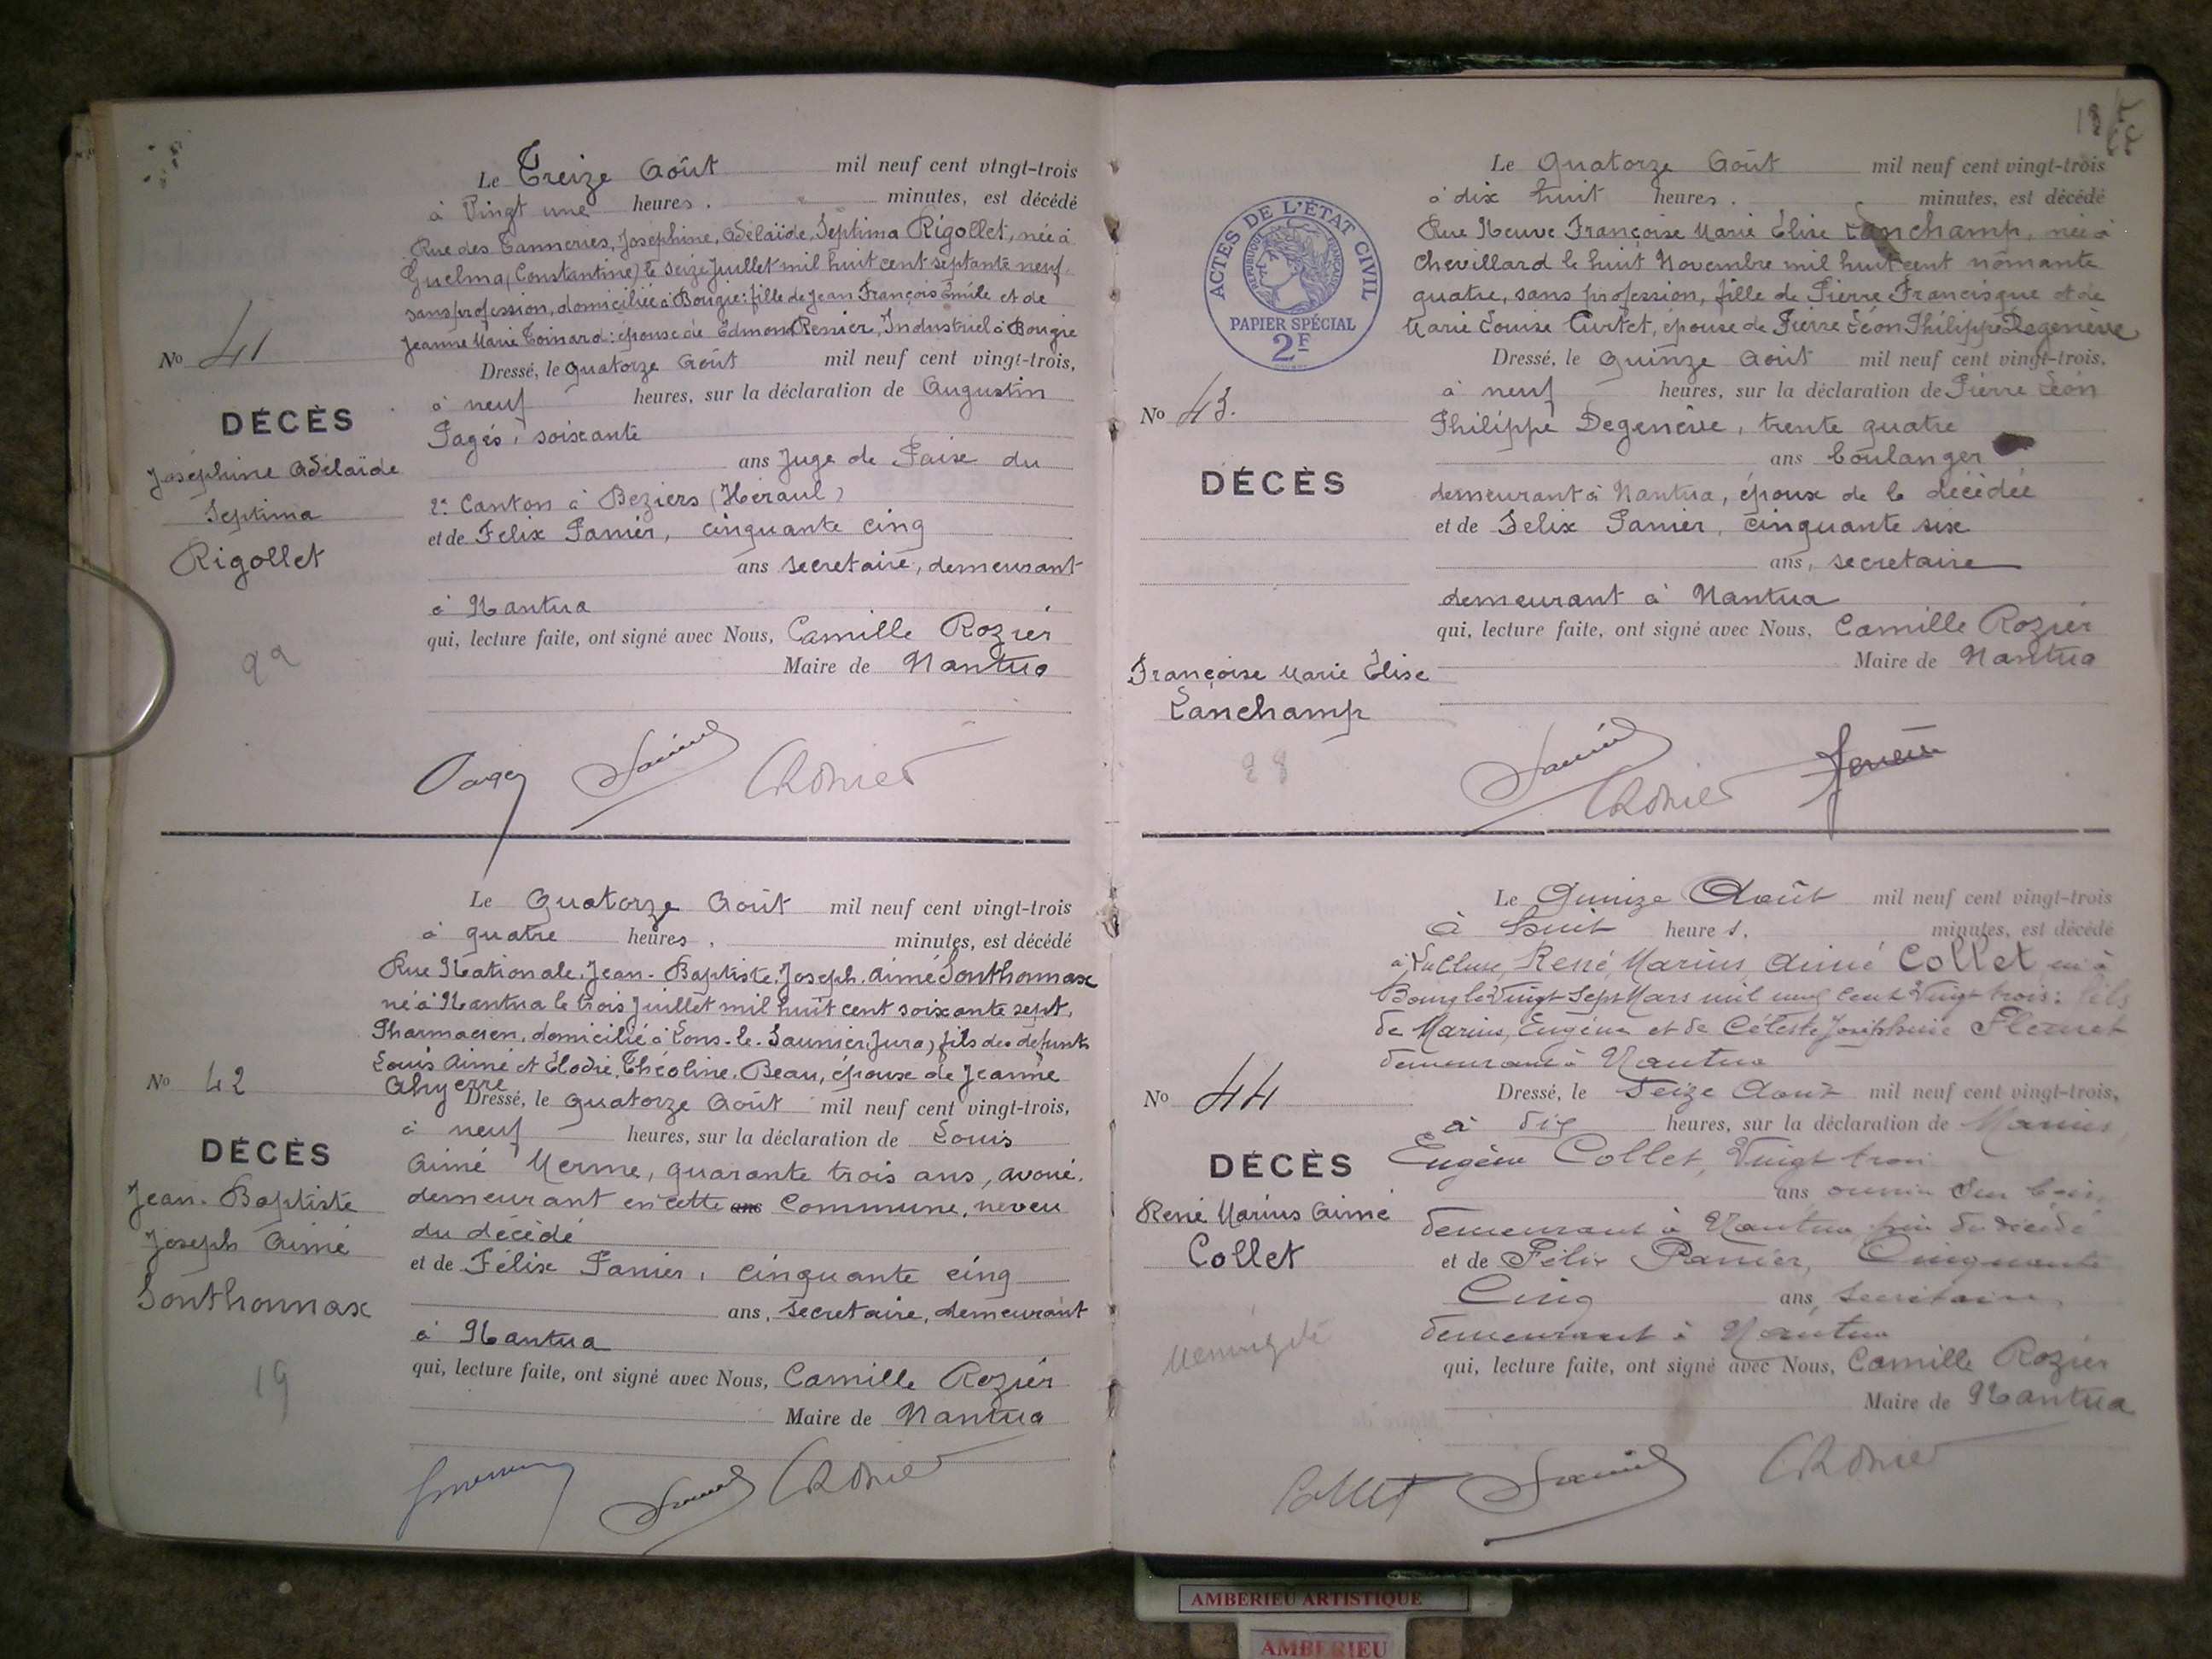 Le Treize Août mil neuf cent vingt-trois
à Vingt une heures. minutes, est décédé
Rue des Tanneries, Joséphine, Adélaïde, Septima Rigollet, née à
Guelma (Constantine) le seize Juillet mil huit cent septante neuf
sans profession, domiciliée à Bougie: fille de Jean François Emile et de
Jeanne Marie Toinard: épouse de Edmond Resnier, Industriel à Bougie
No 41
Dressé, le quatorze Août mil neuf cent vingt-trois,
à neuf heures, sur la déclaration de Augustin
DÉCÈS
Pagés, soixante
Joséphine Adélaïde
ans Juge de Paix du
Septima
2e Canton à Beziers (Héraul)
Rigollet
et de Félix Panier, cinquante cinq
ans secretaire, demeurant
à Nantua
qui, lecture faite, ont signé avec Nous, Camille Rozier
Maire de Nantua
Le Quatorze Août mil neuf cent vingt-trois
à quatre heures, minutes, est décédé
Rue Nationale, Jean-Baptiste, Joseph, Aimé Sonthonnax
né à Nantua le trois Juillet mil huit cent soixante sept,
Pharmacien, domicilié à Lons-le-Saunier (Jura) fils des défunts
Louis Aimé et Elodie, Théoline, Beau, épouse de Jeanne
No 42
Ahyerre
Dressé, le quatorze Août mil neuf cent vingt-trois,
à neuf heures, sur la déclaration de Louis
DÉCÈS
Aimé Merme, quarante trois ans, avoué,
Jean-Baptiste
demeurant en cette ans Commune, neveu
Joseph Aimé
du décédé
Sonthonnax
et de Félix Panier, cinquante cinq
ans, secretaire, demeurant
à Nantua
19
qui, lecture faite, ont signé avec Nous, Camille Rozier
Maire de Nantua
Le Quatorze Août mil neuf cent vingt-trois
à dix huit heures. minutes, est décédé
Rue Neuve Françoise Marie Elise Lanchamp, née à
Chevillard le huit Novembre mil huit cent nonante
quatre, sans profession, fille de Pierre Francisque et de
Marie Louise Curtet, épouse de Pierre Léon Philippe Degenève
ACTES DE L'ÉTAT CIVIL
RÉPUBLIQUE FRANÇAISE
PAPIER SPÉCIAL
2F
Dressé, le Quinze Août mil neuf cent vingt-trois,
No 43.
à neuf heures, sur la déclaration de Pierre Léon
Philippe Degenève, trente quatre
ans boulanger
DÉCÈS
demeurant à Nantua, époux de la décédée
et de Félix Panier, cinquante six
ans, secretaire
demeurant à Nantua
qui, lecture faite, ont signé avec Nous, Camille Rozier
Françoise Marie Elise
Maire de Nantua
Lanchamp
28
Le Quinze Août mil neuf cent vingt-trois
à huit heures. minutes, est décédé
à La Cluse, René Marius Aimé Collet né à
Bourg le Vingt Sept Mars mil neuf cent Vingt trois: fils
de Marius, Eugène et de Céleste Joséphine
demeurant à Nantua
No 44
Dressé, le Seize Août mil neuf cent vingt-trois,
à dix heures, sur la déclaration de Marius
DÉCÈS
Eugène Collet, Vingt trois
ans ouvrier sur bois,
René Marius Aimé
demeurant à Nantua, père du décédé
Collet
et de Félix Panier, Cinquante
Cinq ans, secrétaire,
demeurant à Nantua
qui, lecture faite, ont signé avec Nous, Camille Rozier
Maire de Nantua
Collet
AMBERIEU ARTISTIQUE
AMBERIEU